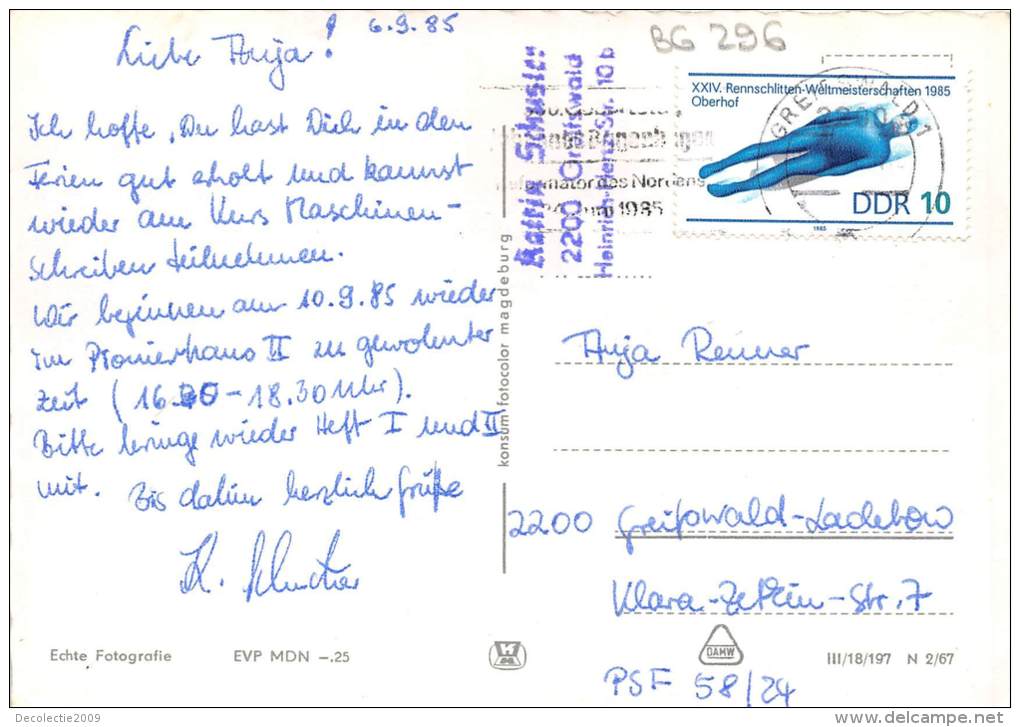 6.9.85
Liebe Anja!
Ich hoffe, Du hast Dich in den
Ferien gut erholt und kannst
wieder am Kurs Maschinen-
schreiben teilnehmen.
Wir beginnen am 10.9.85 wieder
im Pionierhaus II zu gewohnter
Zeit (16.00-18.30 Uhr).
Bitte bringe wieder Heft I und II
mit. Bis dahin herzlich Grüße
K. Schuster
Echte Fotografie EVP MDN -.25
konsum fotocolor magdeburg
BG 296
Katrin Schuster
2200 Greifswald
Heinrich-
Str. 10b
XXIV. Rennschlitten-Weltmeisterschaften 1985
Oberhof
DDR 10
1985
GREIFSWALD 1
Geburtstag
Bugenhagen
Reformator des Nordens
Juni 1985
Anja Renner
2200 Greifswald-Ladebow
Klara-Zetkin-Str. 7
DAMW
III/18/197 N 2/67
PSF 58/24
Decolectie2009
www.delcampe.net